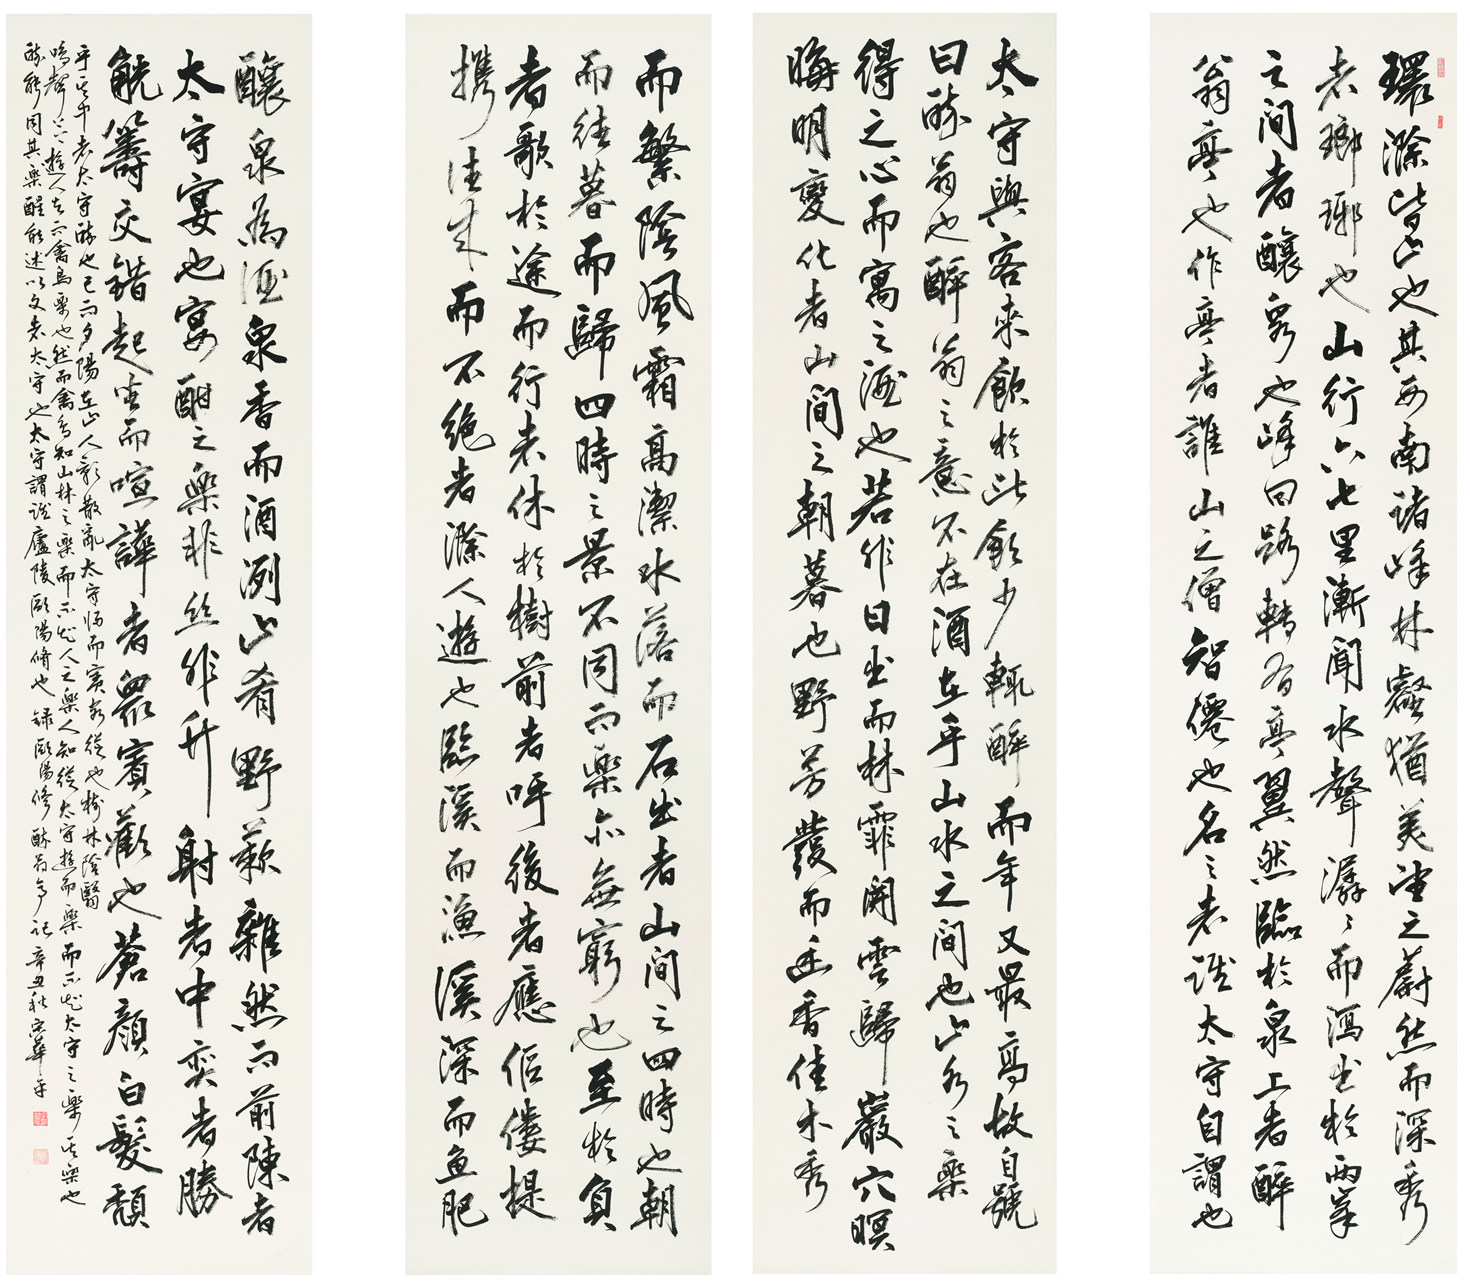 環滁皆山也其西南諸峰林壑猶美望之蔚然而深秀
者瑯琊也山行六七里漸聞水聲潺々而瀉出於兩峯
之間者釀泉也峰回路轉有亭翼然臨於泉上者醉
翁亭也作亭者誰山之僧智僊也名之者誰太守自謂也
太守與客來飲於此飲少輒醉而年又最高故自號
曰醉翁也醉翁之意不在酒在乎山水之間也山水之樂
得之心而寓之酒也若非日出而林霏開雲歸巖穴暝
晦明變化者山間之朝暮也野芳發而幽香佳木秀
而繁陰風霜高潔水落而石出者山間之四時也朝
而往暮而歸四時之景不同而樂亦無窮也至於負
者歌於途而行者休於樹前者呼後者應傴僂提
攜往來而不絕者滁人遊也臨溪而漁溪深而魚肥
釀泉為酒泉香而酒洌山肴野蔌雜然而前陳者
太守宴也宴酣之樂非絲非竹射者中奕者勝
觥籌交錯起坐而喧譁者衆賓歡也蒼顏白髮頹
乎其中者太守醉也已而夕陽在山人影散亂太守歸而賓客從也樹林陰翳
鳴聲上下遊人去而禽鳥樂也然而禽鳥知山林之樂而不知人之樂人知從太守遊而樂而不知太守之樂其樂也
醉能同其樂醒能述以文者太守也太守謂誰廬陵歐陽脩也 録歐陽修醉翁亭記 辛丑秋